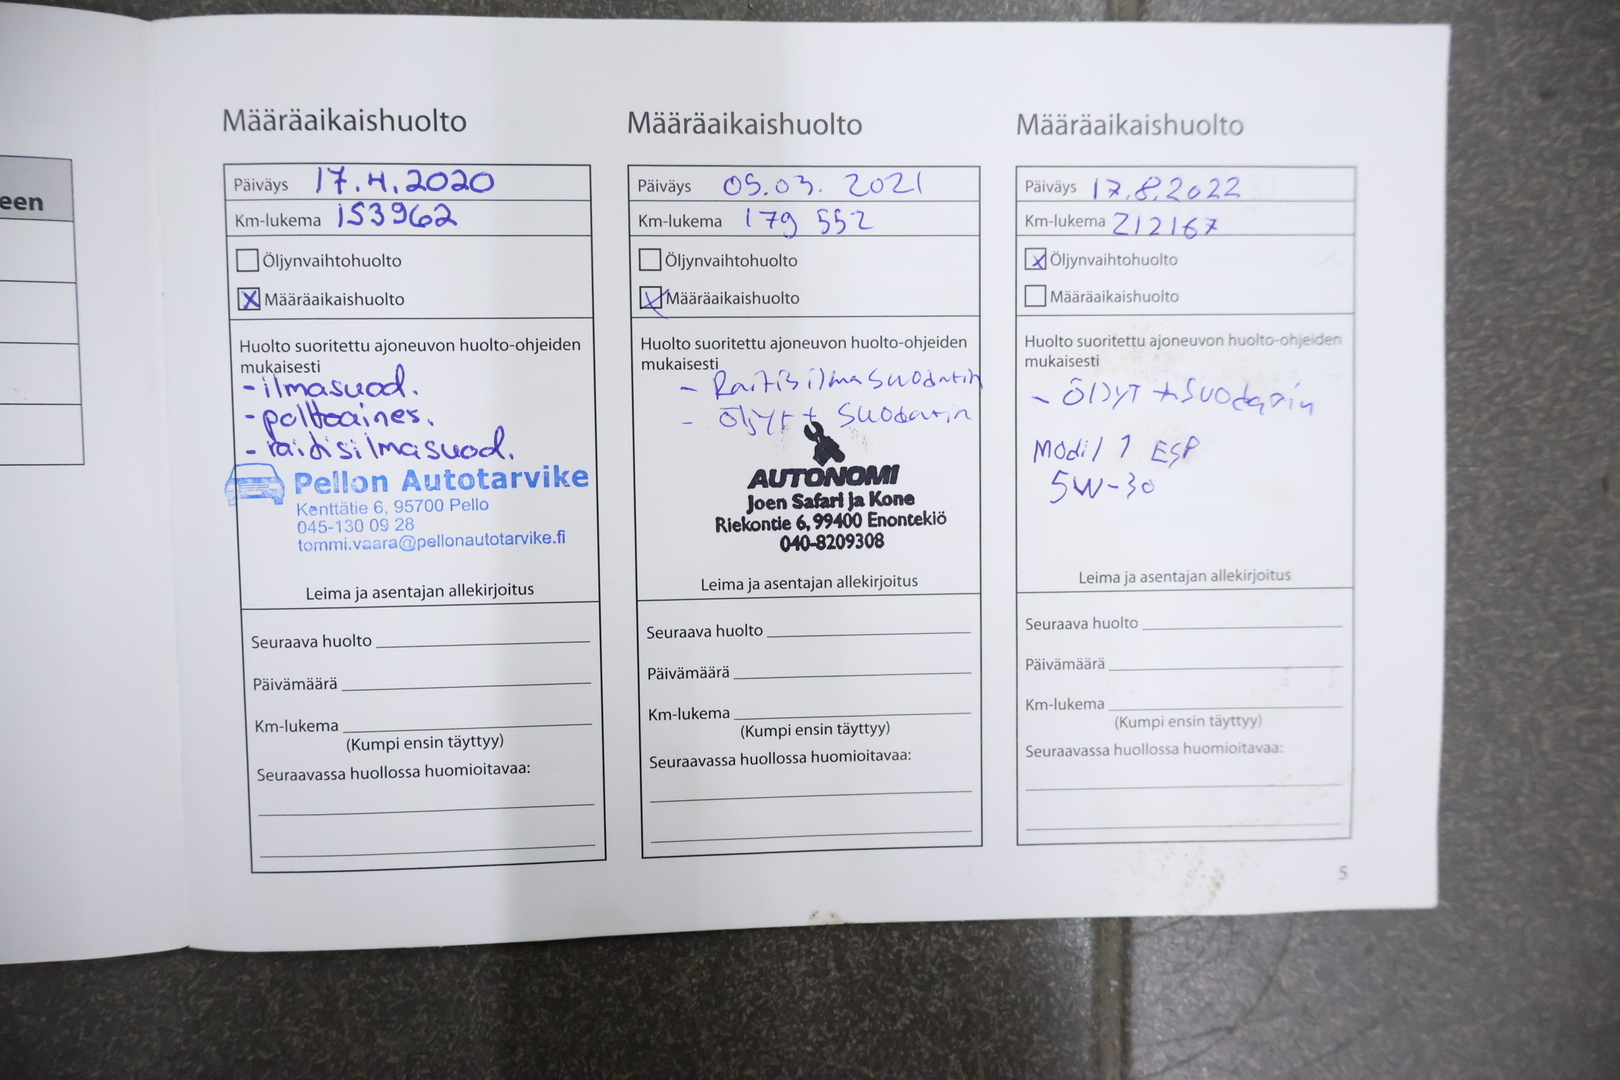 een
Määräaikaishuolto
Päiväys 17.4.2020
Km-lukema 153962
Öljynvaihtohuolto
X Määräaikaishuolto
Huolto suoritettu ajoneuvon huolto-ohjeiden
mukaisesti
- ilmasuod.
- polttoaines.
- raitisilmasuod.
Pellon Autotarvike
Kenttätie 6, 95700 Pello
045-130 09 28
tommi.vaara@pellonautotarvike.fi
Leima ja asentajan allekirjoitus
Seuraava huolto
Päivämäärä
Km-lukema
(Kumpi ensin täyttyy)
Seuraavassa huollossa huomioitavaa:
Määräaikaishuolto
Päiväys 05.03. 2021
Km-lukema 179 552
Öljynvaihtohuolto
X Määräaikaishuolto
Huolto suoritettu ajoneuvon huolto-ohjeiden
mukaisesti
- Raitisilmasuodatin
- Öljyt + Suodatin
AUTONOMI
Joen Safari ja Kone
Riekontie 6, 99400 Enontekiö
040-8209308
Leima ja asentajan allekirjoitus
Seuraava huolto
Päivämäärä
Km-lukema
(Kumpi ensin täyttyy)
Seuraavassa huollossa huomioitavaa:
Määräaikaishuolto
Päiväys 17.8.2022
Km-lukema 212167
X Öljynvaihtohuolto
Määräaikaishuolto
Huolto suoritettu ajoneuvon huolto-ohjeiden
mukaisesti
- Öljyt + Suodatin
Mobil 1 ESP
5W-30
Leima ja asentajan allekirjoitus
Seuraava huolto
Päivämäärä
Km-lukema
(Kumpi ensin täyttyy)
Seuraavassa huollossa huomioitavaa:
5